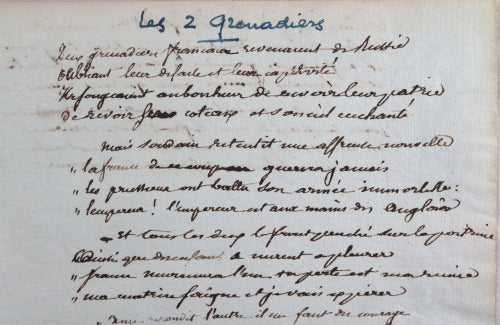 Les 2 grenadiers
Deux grenadiers français revenaient de Russie
Oubliant leur défaite et leur captivité
au bonheur de revoir leur patrie
de revoir ses coteaux et son ciel enchanté
mais soudain retentit une affreuse nouvelle
" la france jamais
" les prussiens ont battu son armée immortelle :
" l'empereur ! l'empereur est aux mains des anglois
et tous les deux le front penché sur la poitrine
ainsi que des enfans se mirent a pleurer
" france murmura l'un ta perte est ma ruine
" ma et je vais expirer
" l'autre il me faut du courage